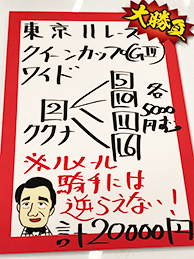 大勝負
東京11レース
クイーンカップ(GⅢ)
ワイド
2
ククナ
5
10
11
16
各
5000
円也
※ルメール
騎手には
逆らえない!
計20000円